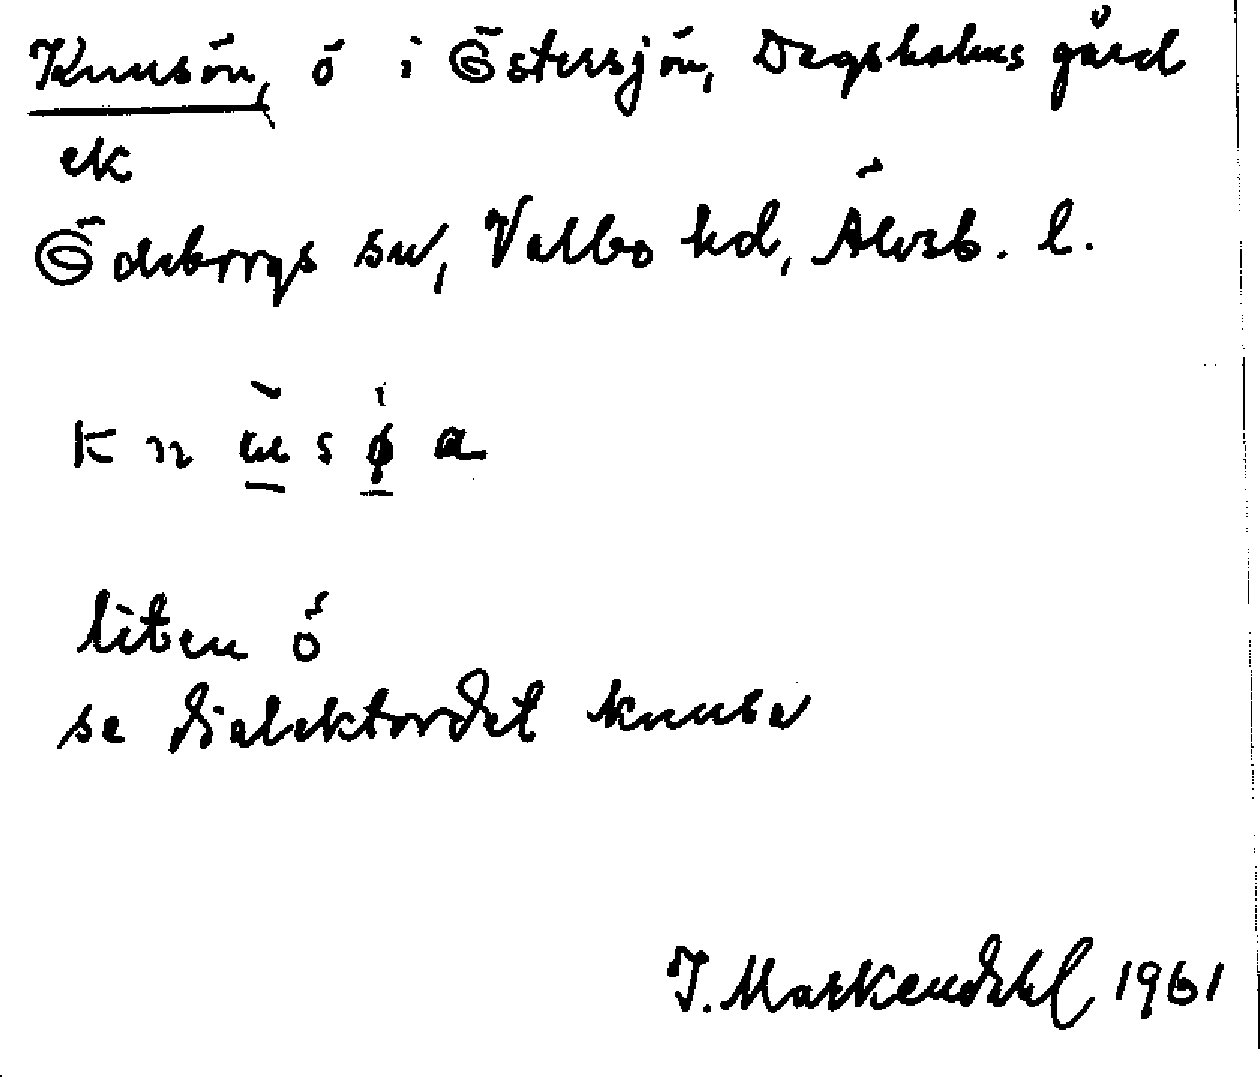 Knusön, ö i Östersjön, Dagsholms gård
ek
Ödeborgs sn, Valbo hd, Älvsb. l.
k n ɯ̀ s ø̍ a
liten ö
se dialektordet knuse
J. Markendahl 1961